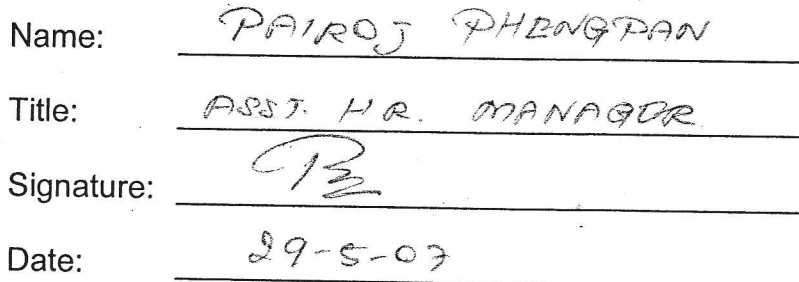 Name: PAIROJ PHENGPAN
Title: ASST. HR. MANAGER
Signature:
Date: 29-5-07